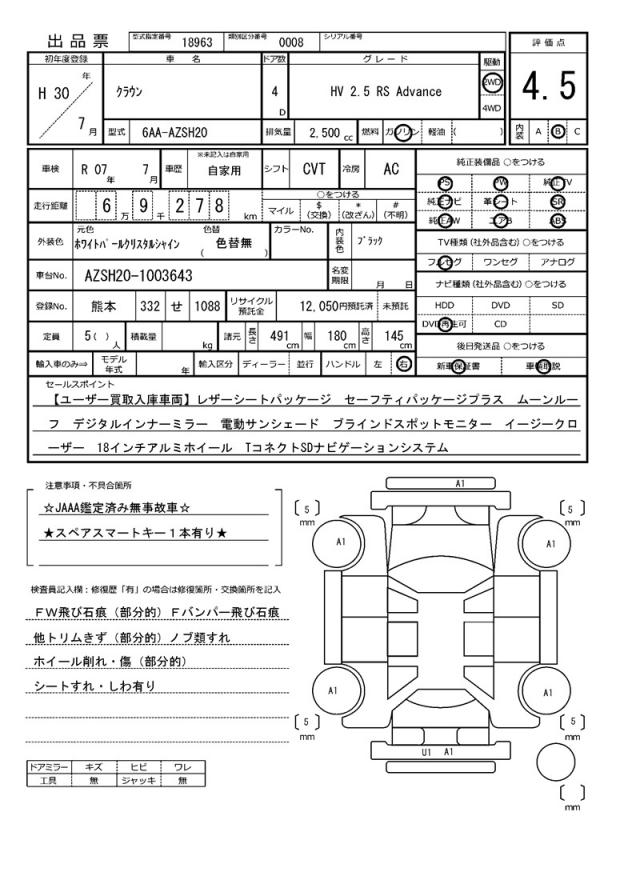 出品票
型式指定番号 18963 類別区分番号 0008 シリアル番号
評価点
4.5
内装 A B C
初年度登録 車名 ドア数 グレード 駆動
H 30 年 7 月
クラウン
4 D
HV 2.5 RS Advance
2WD
4WD
型式 6AA-AZSH20 排気量 2,500 cc 燃料 ガソリン 軽油 ( )
車検 R 07 年 7 月 車歴 ※未記入は自家用 自家用 シフト CVT 冷房 AC
走行距離 6 万 9 千 2 7 8 km
○をつける
マイル $ (交換) * (改ざん) # (不明)
外装色 元色 ホワイトパールクリスタルシャイン 色替 ( 色替無 ) カラーNo. 内装色 ブラック
車台No. AZSH20-1003643 名変期限 月 日
登録No. 熊本 332 せ 1088 リサイクル預託金 12,050円預託済 未預託
定員 5( ) 人 積載量 kg 諸元 長さ 491 cm 幅 180 cm 高さ 145 cm
輸入車のみ⇒ モデル年式 年 輸入区分 ディーラー 並行 ハンドル 左 右
純正装備品 ○をつける
PS PW 純正TV
純正ナビ 革シート SR
純正AW エアB ABS
TV種類(社外品含む) ○をつける
フルセグ ワンセグ アナログ
ナビ種類(社外品含む) ○をつける
HDD DVD SD
DVD再生可 CD
後日発送品 ○をつける
新車保証書 車輌取説
セールスポイント
【ユーザー買取入庫車両】レザーシートパッケージ セーフティパッケージプラス ムーンルー
フ デジタルインナーミラー 電動サンシェード ブラインドスポットモニター イージークロ
ーザー 18インチアルミホイール TコネクトSDナビゲーションシステム
注意事項・不具合箇所
☆JAAA鑑定済み無事故車☆
★スペアスマートキー1本有り★
検査員記入欄：修復歴「有」の場合は修復箇所・交換箇所を記入
FW飛び石痕（部分的）Fバンパー飛び石痕
他トリムきず（部分的）ノブ類すれ
ホイール削れ・傷（部分的）
シートすれ・しわ有り
ドアミラー キズ ヒビ ワレ
工具 無 ジャッキ 無
A1
5 mm
5 mm
A1
A1
A1
A1
5 mm
5 mm
U1 A1
mm